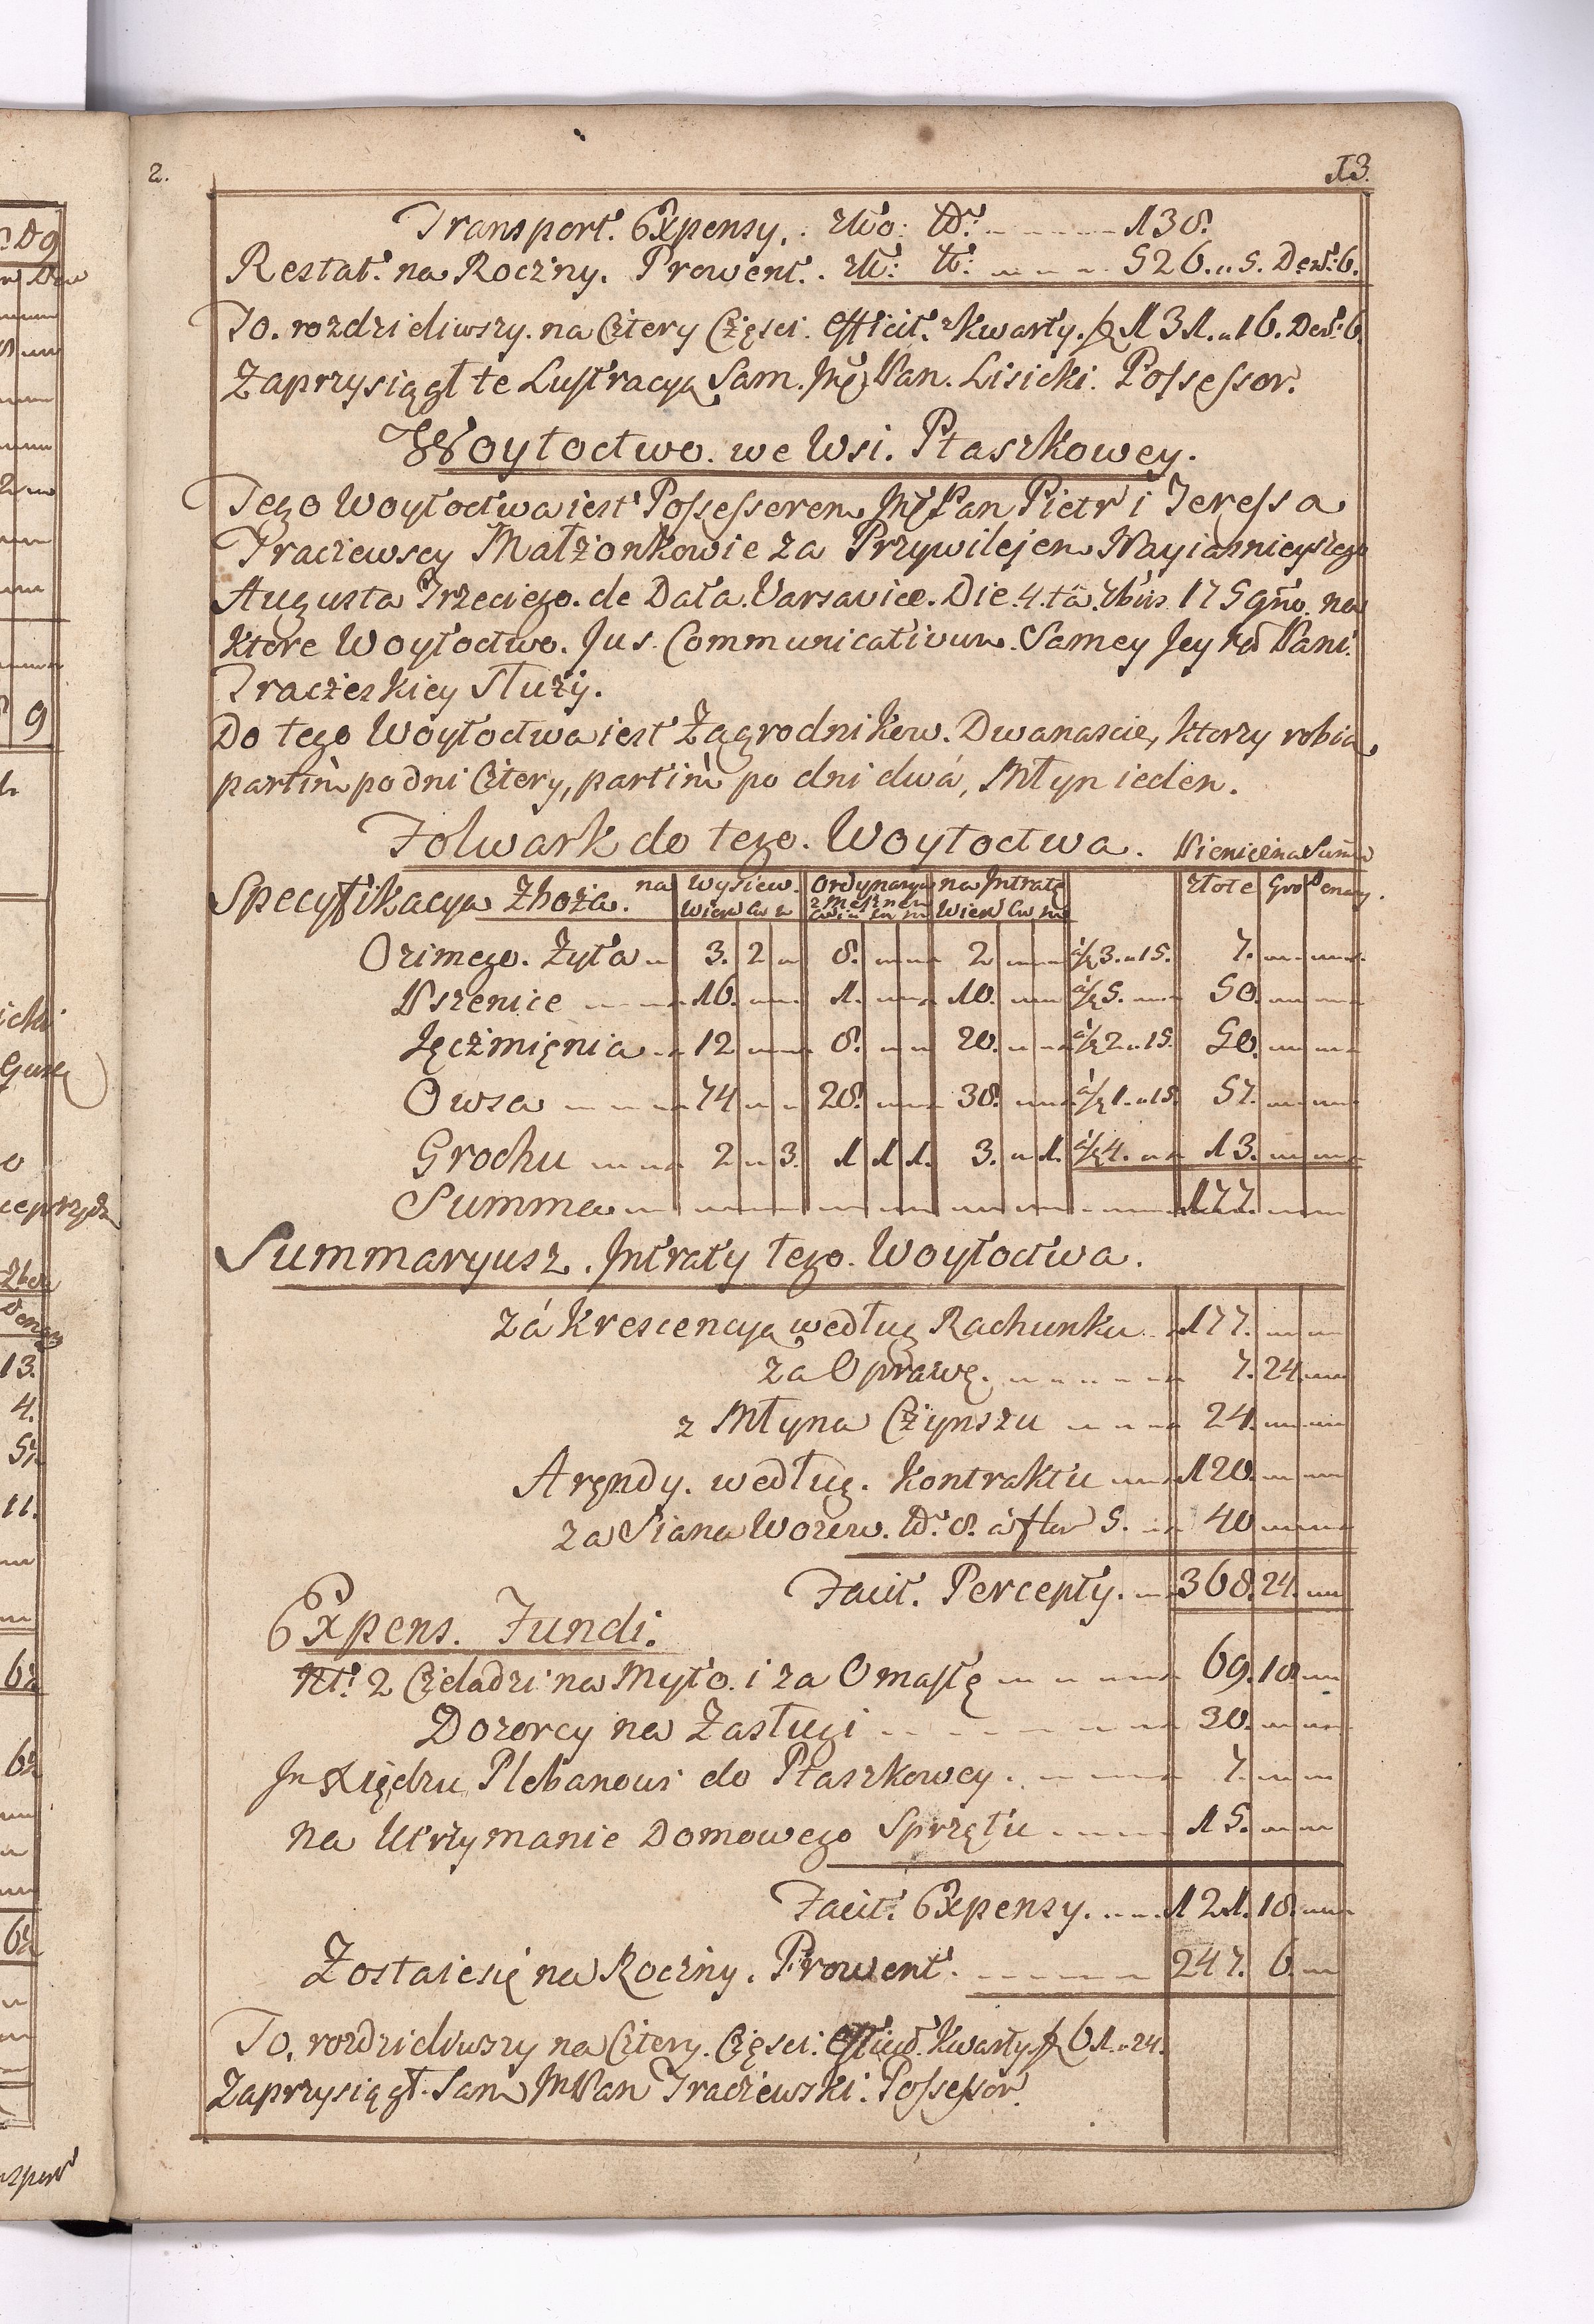 2. 13.
Transport. Expensy. złło: N⁰: 138.
Restat. na Roczny. Prowent. 526. „ 5. Den: 6.
To. rozdzieliwszy. na Cztery Części. Efficit. Kwarty. f 131. „ 16. Den: 6.
Zaprzysiągł te Lustracyą Sam. Jmć Pan. Lisicki. Possessor.
Woytoctwo. we Wsi. Ptaszkowey.
Tego Woytoctwa iest Possessorem Jmć Pan Piotr i Teressa
Traczewscy Małżonkowie za Przywilejem Nayiasnieyszego
Augusta Trzeciego. de Data. Varsaviæ. Die. 4. ta. 7bris 1759no. na
ktore Woytoctwo. Jus. Communicativum. Samey Jey Pani.
Traczeskiey Służy.
Do tego Woytoctwa iest Zagrodnikow. Dwanascie, ktorzy robią
partim po dni Cztery, partim po dni dwá, Młyn ieden.
Folwark do tego. Woytoctwa. Pieniężna Suma
Specyfikacya Zboża. na Wysiew. Ordynaryą na Intratę Złote Gro Denary.
Wier Ćw Wier Ćw
Ozimego. Żyta 3. 2 8. 2 á f 3. „ 15. 7.
Pszenice 16. 1. 10. á f 5. 50.
Jęczmięnia 12 8. 20. á f 2. „ 15. 50.
Owsa 74 28. 38. á f 1. „ 15. 57.
Grochu 2 „ 3. 1 1 1. 3. „ 1. á f 4. 13.
Summa 177.
Summaryusz. Intraty tego. Woytoctwa.
zá Krescencyą według Rachunku 177.
za Oprawę. 7. 24.
z Młyna Czynszu 24.
Aręndy. według. Kontraktu 120.
za Siana Wozow. N⁰: 8. á flor 5. 40
Facit. Percepty. 368. 24.
Expens. Fundi.
N⁰: 2 Czeladzi na Myto. i za Omastę 69. 18.
Dozorcy na Zasługi 30.
Jm Xiędzu Plebanowi do Ptaszkowey. 7.
na Utrzymanie Domowego Sprzętu 15.
Facit. Expensy. 121. 18.
Zostaie się na Roczny. Prowent. 247. 6.
To. rozdzieliwszy na Cztery. Części. Efficit. Kwarty f 61. „ 24.
Zaprzysiągł. Sam Jm Pan Traczewski. Possessor.